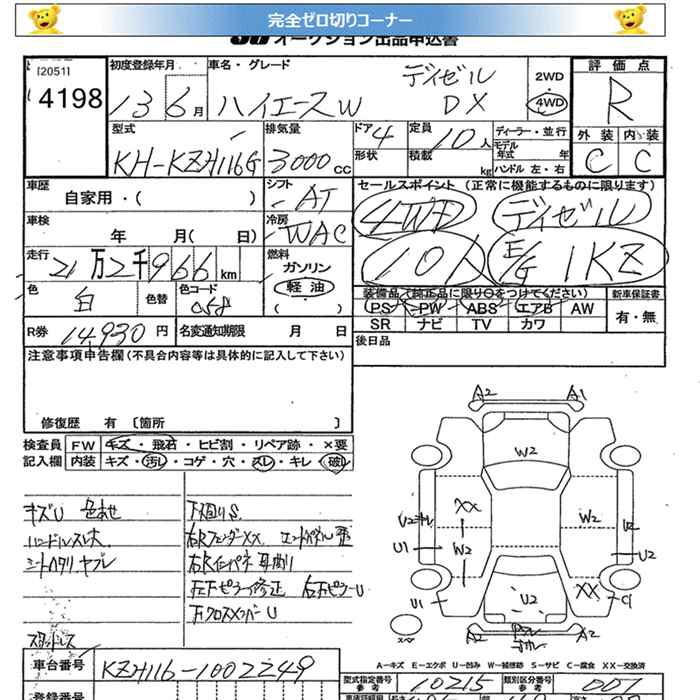 完全ゼロ切りコーナー
オークション出品申込書
[2051]
4198
初度登録年月
13 6月
車名・グレード
ハイエースW
ディゼル
DX
2WD
4WD
評価点
R
外装 内装
C C
型式
KH-KZH116G
排気量
3000 cc
ドア 4
形状
定員 10人
積載 kg
ディーラー・並行
モデル年式 年
ハンドル 左・右
車歴
自家用・( )
シフト
AT
セールスポイント (正常に機能するものに限ります)
4WD ディゼル
10人 E/G 1KZ
車検
年 月( 日)
冷房
WAC
走行
21万2千966km
燃料
ガソリン
軽油
( )
色
白
色替
色コード
058
装備品(純正品に限り○をつけてください) 新車保証書
PS PW ABS エアB AW
SR ナビ TV カワ
有・無
R券 14,930円
名変通知期限 月 日
後日品
注意事項申告欄(不具合内容等は具体的に記入して下さい)
修復歴 有 〔箇所 〕
検査員 FW キズ・飛石・ヒビ割・リペア跡・×要
記入欄 内装 キズ・汚レ・コゲ・穴・スレ・キレ・破レ
キズU 色あせ
ハンドルスレ大
シートヘタリ、ヤブレ
スタットレス
下廻りS
右Rフェンダー××
右Rインパネ 耳曲り
左Fピラー修正 右Fピラー U
Fクロスメンバー U
A2 A1
W2
XX
W2
W2
U2
U1
U2
U1
U2
XX
C1
A2 A2
A－キズ E－エクボ U－凹み W－補修跡 S－サビ C－腐食 XX－交換済
車台番号
KZH116-1002249
型式指定番号
参考
10215
類別区分番号
参考
007
登録番号